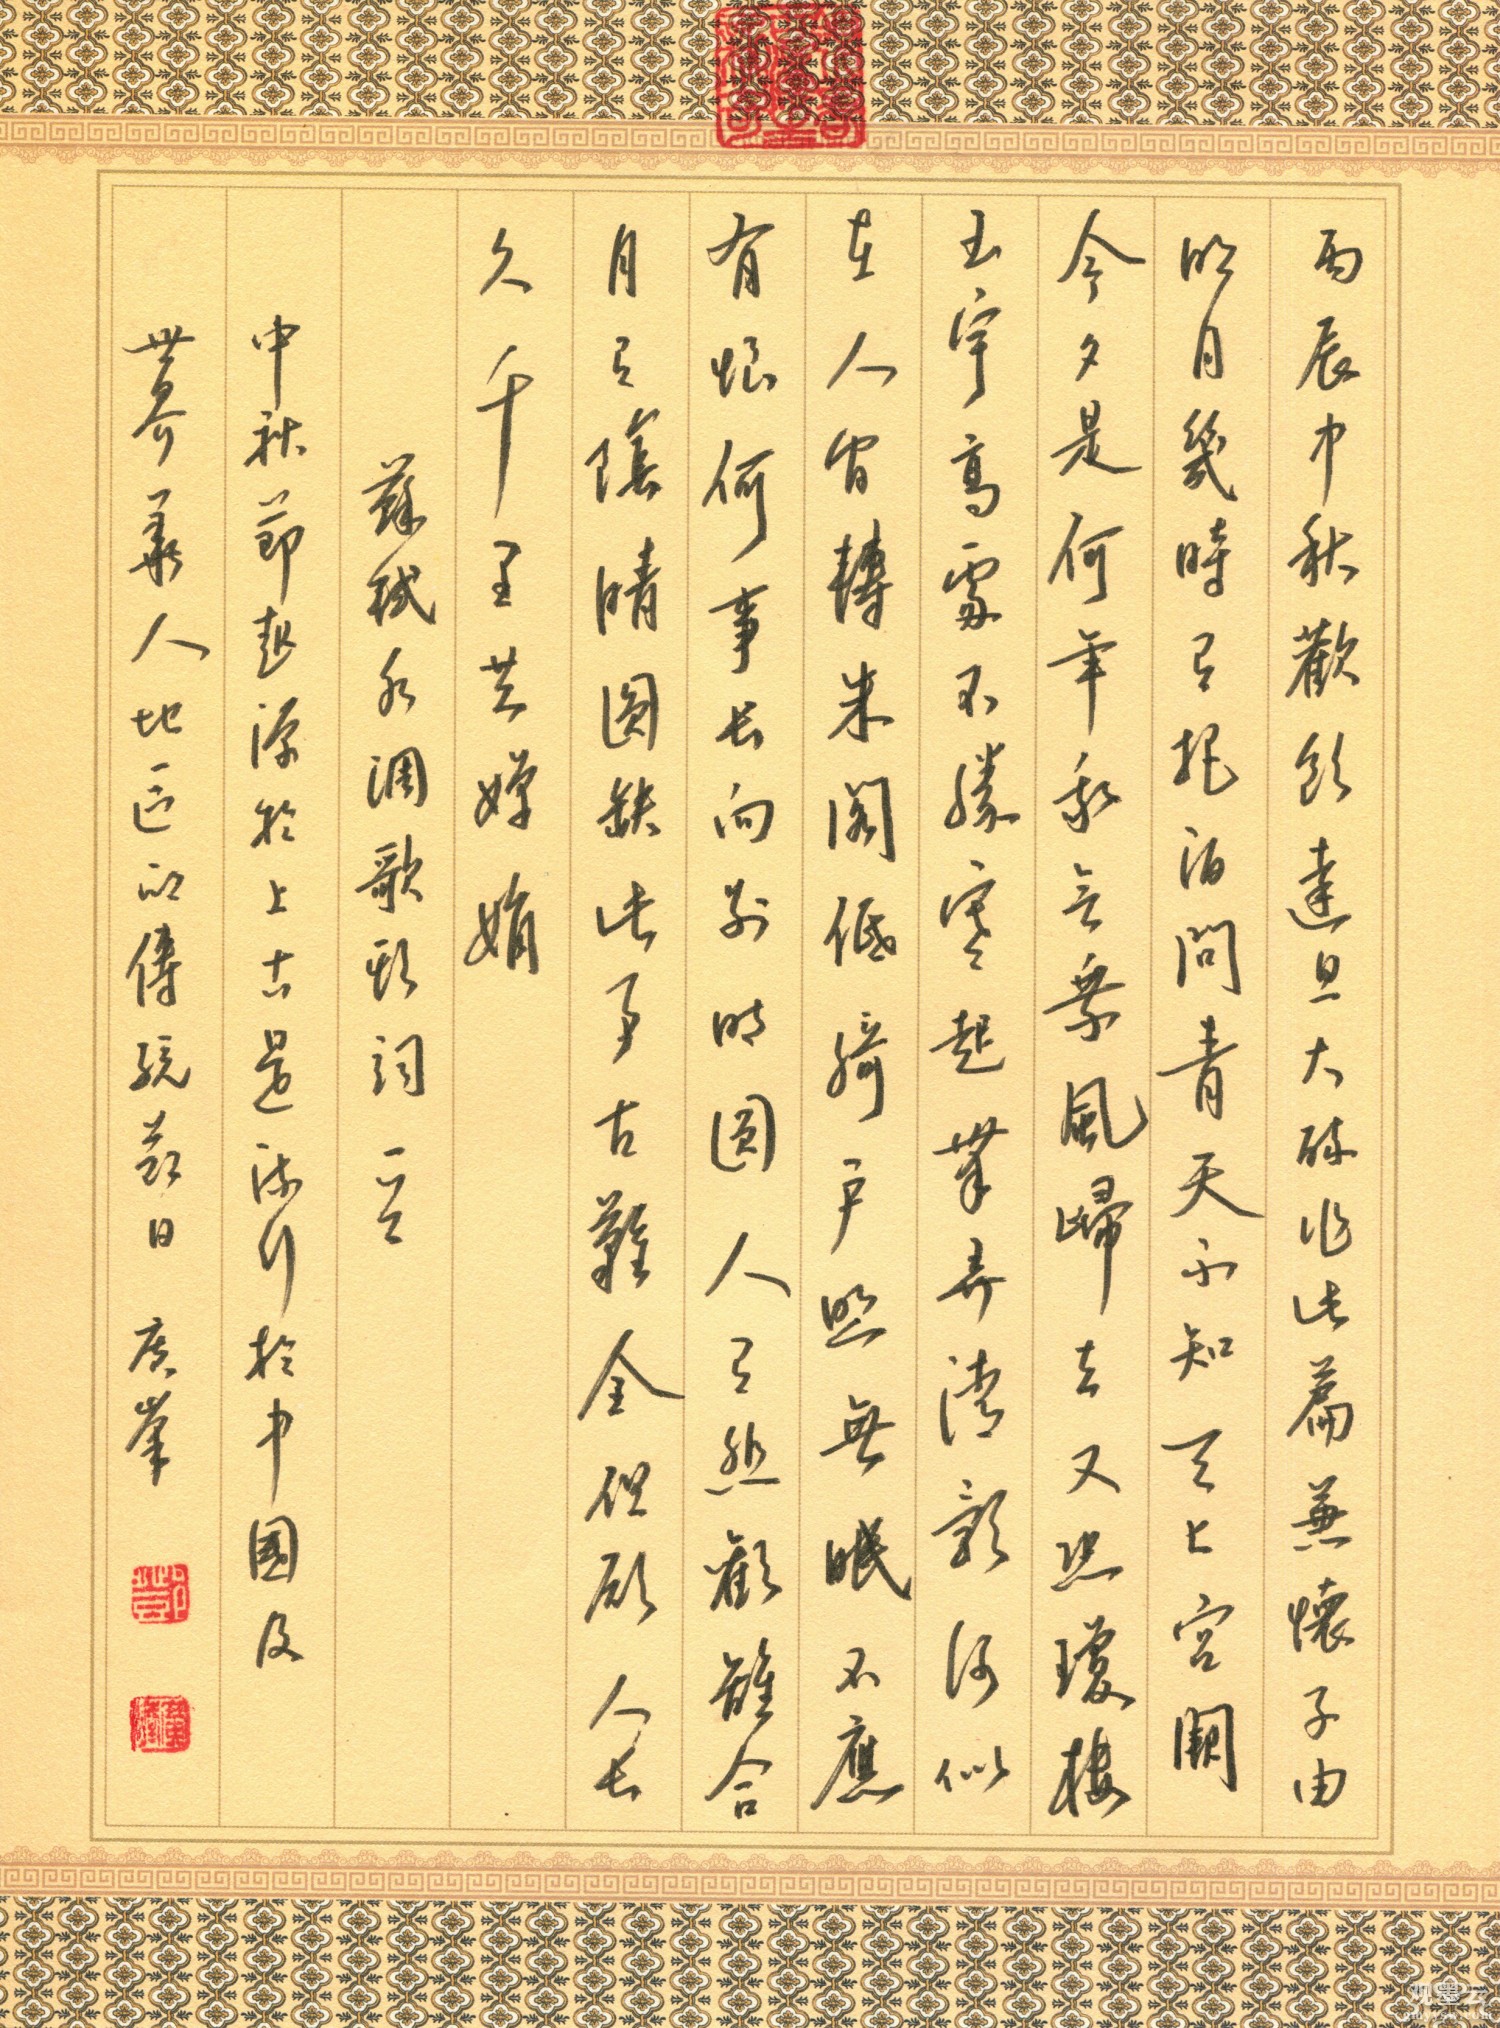 丙辰中秋歡飲達旦大醉作此篇兼懷子由
明月幾時有把酒問青天不知天上宮闕
今夕是何年我欲乘風歸去又恐瓊樓
玉宇高處不勝寒起舞弄清影何似
在人間轉朱閣低綺戶照無眠不應
有恨何事長向別時圓人有悲歡離合
月有陰晴圓缺此事古難全但願人長
久千里共嬋娟
蘇軾水調歌頭詞一首
中秋節起源於上古還流行於中國及
世界華人地區的傳統節日 廣峯